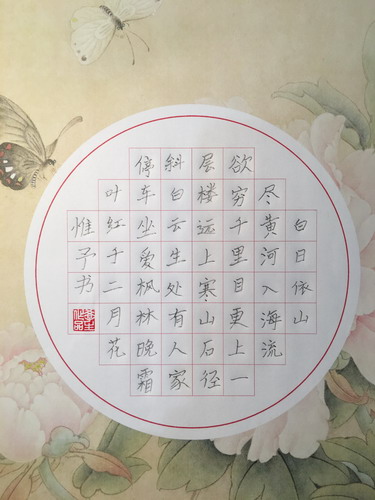 白日依山
尽黄河入海流
欲穷千里目更上一
层楼远上寒山石径
斜白云生处有人家
停车坐爱枫林晚霜
叶红于二月花
惟予书